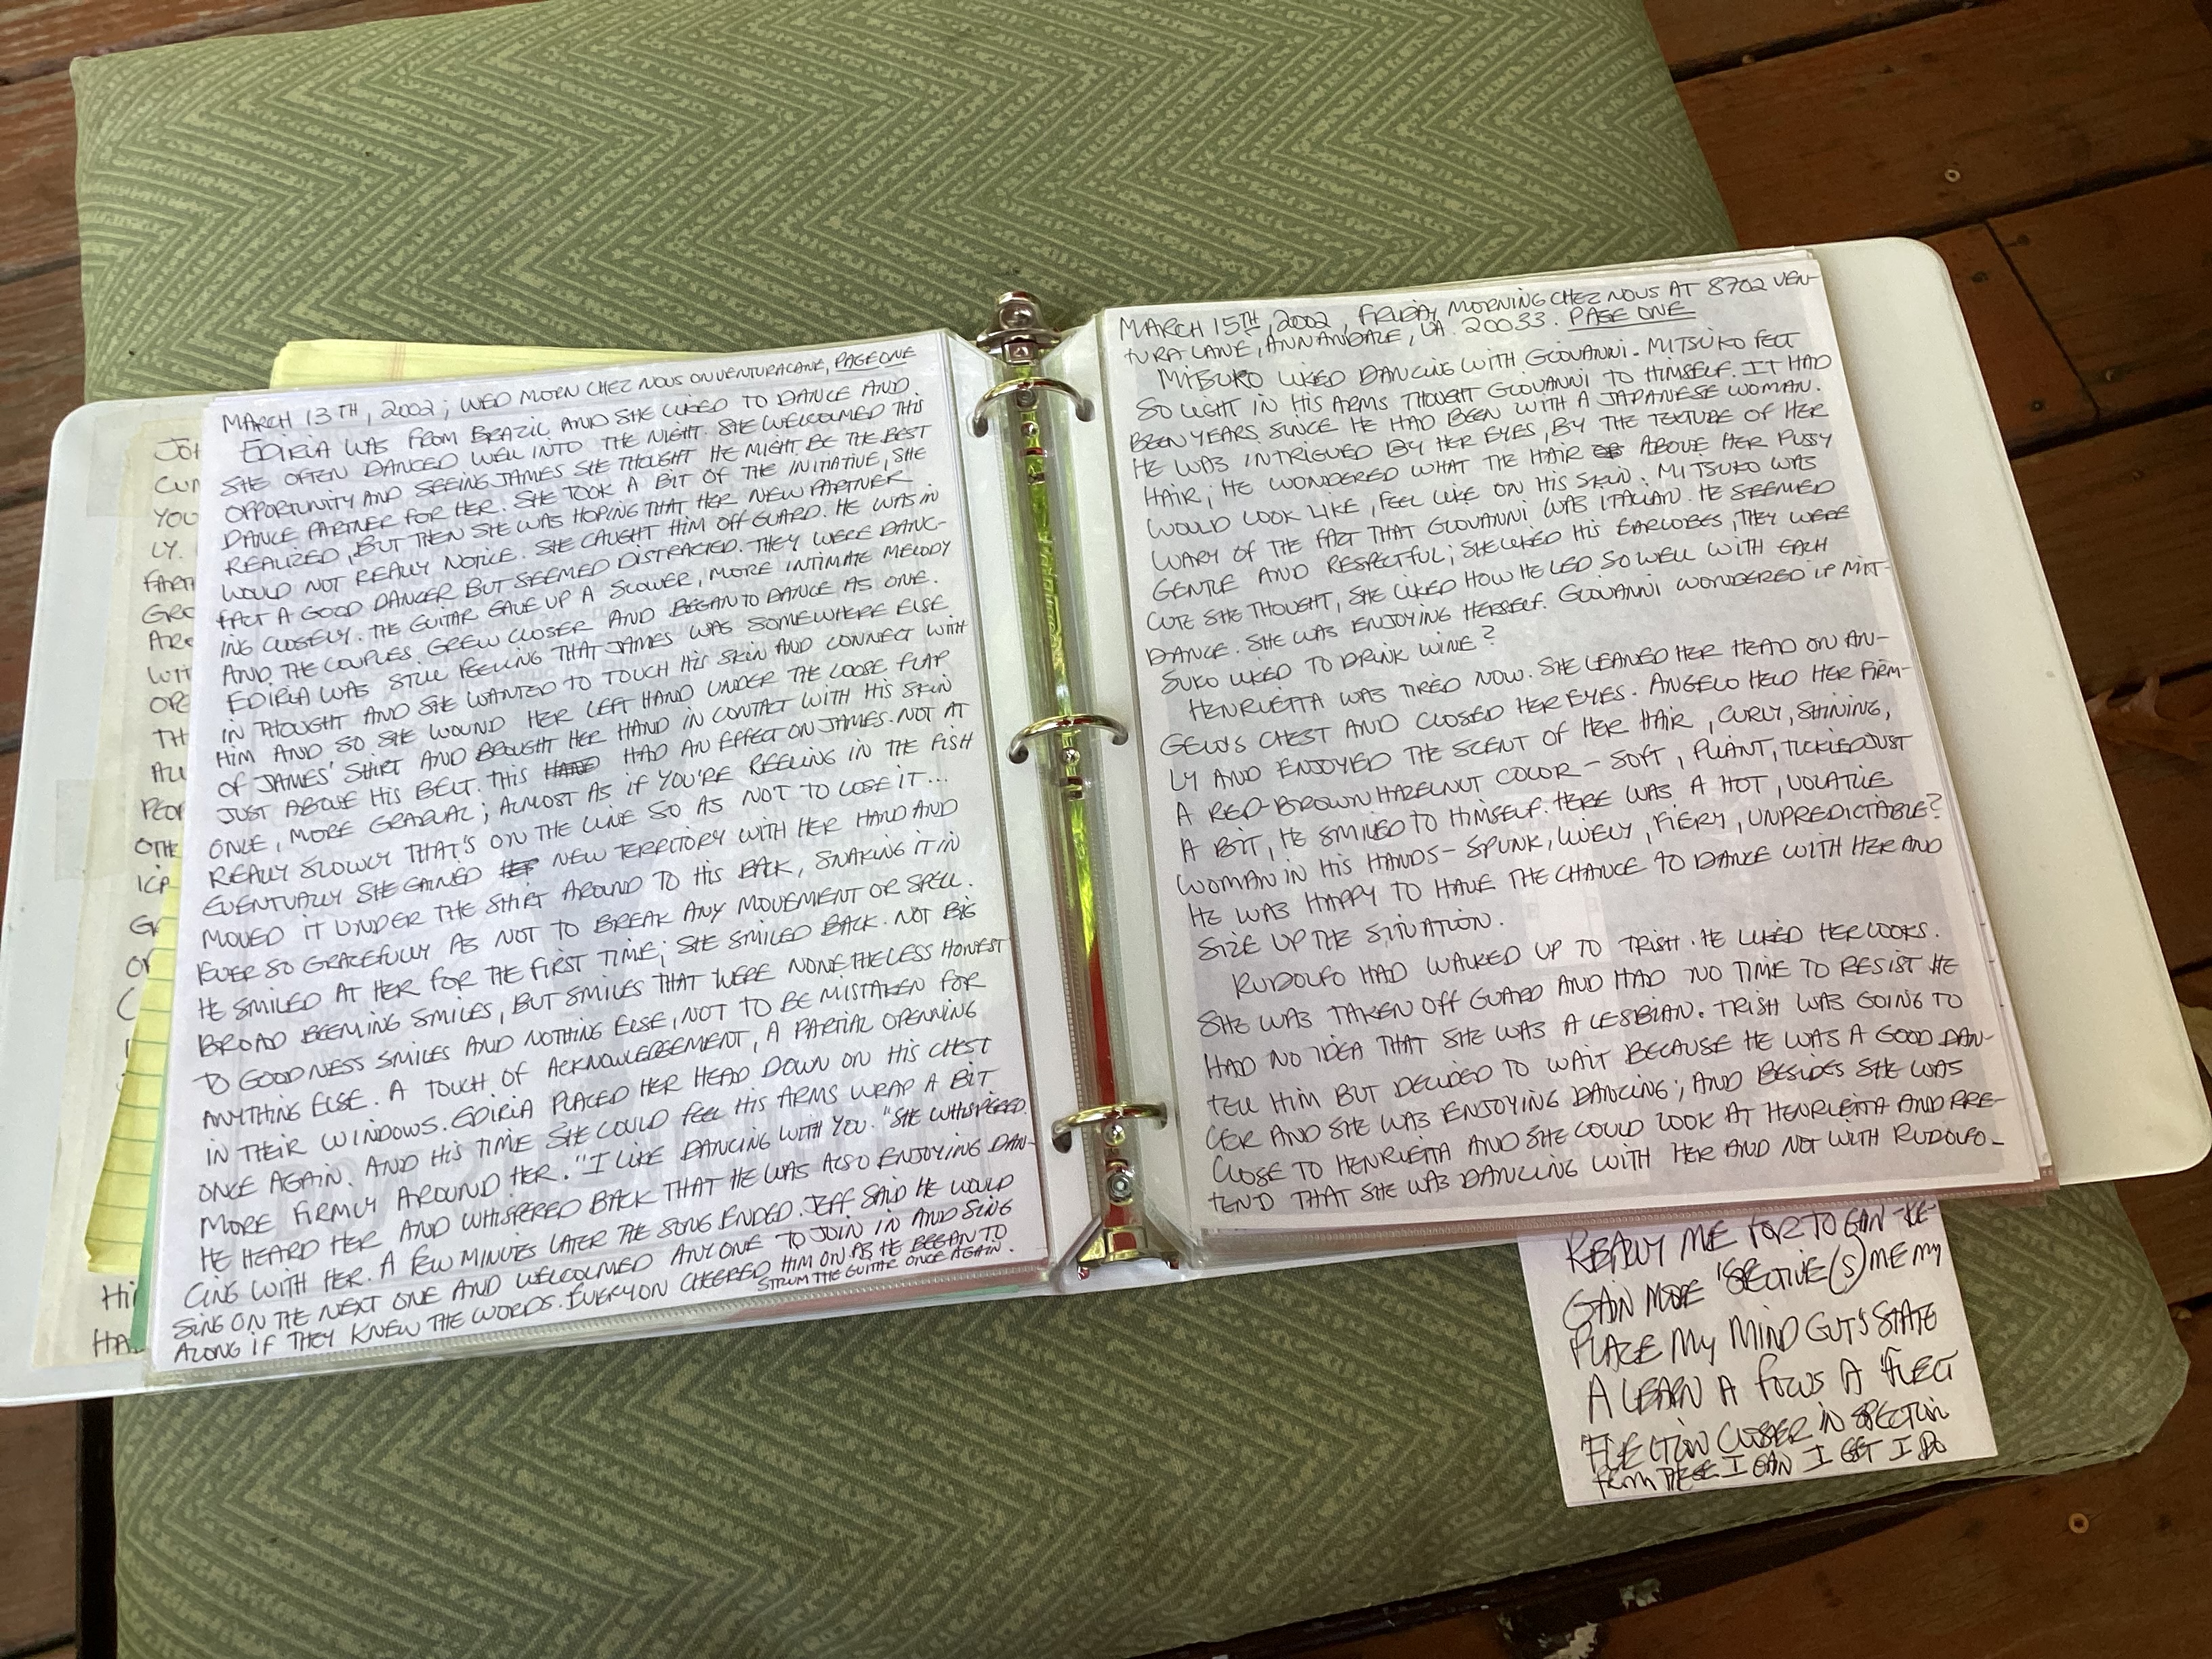 MARCH 13TH, 2002; WED MORN CHEZ NOUS ON VENTURA LANE, PAGE ONE
EDIRIA WAS FROM BRAZIL AND SHE LIKED TO DANCE AND
SHE OFTEN DANCED WELL INTO THE NIGHT. SHE WELCOLMED THIS
OPPORTUNITY AND SEEING JAMES SHE THOUGHT HE MIGHT BE THE BEST
DANCE PARTNER FOR HER. SHE TOOK A BIT OF THE INITIATIVE, SHE
REALIZED, BUT THEN SHE WAS HOPING THAT HER NEW PARTNER
WOULD NOT REALLY NOTICE. SHE CAUGHT HIM OFF GUARD. HE WAS IN
FACT A GOOD DANCER BUT SEEMED DISTRACTED. THEY WERE DANC-
ING CLOSELY. THE GUITAR GAVE UP A SLOWER, MORE INTIMATE MELODY
AND THE COUPLES GREW CLOSER AND BEGAN TO DANCE AS ONE.
EDIRIA WAS STILL FEELING THAT JAMES WAS SOMEWHERE ELSE
IN THOUGHT AND SHE WANTED TO TOUCH HIS SKIN AND CONNECT WITH
HIM AND SO SHE WOUND HER LEFT HAND UNDER THE LOOSE FLAP
OF JAMES' SHIRT AND BROUGHT HER HAND IN CONTACT WITH HIS SKIN
JUST ABOVE HIS BELT. THIS HAND HAD AN EFFECT ON JAMES. NOT AT
ONCE, MORE GRADUAL; ALMOST AS IF YOU'RE REELING IN THE FISH
REALLY SLOWLY THAT'S ON THE LINE SO AS NOT TO LOSE IT...
EVENTUALLY SHE GAINED HER NEW TERRITORY WITH HER HAND AND
MOVED IT UNDER THE SHIRT AROUND TO HIS BACK, SNAKING IT IN
EVER SO GRACEFULLY AS NOT TO BREAK ANY MOVEMENT OR SPELL.
HE SMILED AT HER FOR THE FIRST TIME; SHE SMILED BACK. NOT BIG
BROAD BEEMING SMILES, BUT SMILES THAT WERE NONE THE LESS HONEST
TO GOODNESS SMILES AND NOTHING ELSE, NOT TO BE MISTAKEN FOR
ANYTHING ELSE. A TOUCH OF ACKNOWLEDGEMENT, A PARTIAL OPENNING
IN THEIR WINDOWS. EDIRIA PLACED HER HEAD DOWN ON HIS CHEST
ONCE AGAIN. AND HIS TIME SHE COULD FEEL HIS ARMS WRAP A BIT
MORE FIRMLY AROUND HER. "I LIKE DANCING WITH YOU." SHE WHISPERED.
HE HEARD HER AND WHISPERED BACK THAT HE WAS ALSO ENJOYING DAN-
CING WITH HER. A FEW MINUTES LATER THE SONG ENDED. JEFF SAID HE WOULD
SING ON THE NEXT ONE AND WELCOLMED ANYONE TO JOIN IN AND SING
ALONG IF THEY KNEW THE WORDS. EVERYON CHEERED HIM ON AS HE BEGAN TO
STRUM THE GUITAR ONCE AGAIN.
MARCH 15TH, 2002, FRIDAY MORNING CHEZ NOUS AT 8702 VEN-
TURA LANE, ANNANDALE, VA. 20033. PAGE ONE
MITSUKO LIKED DANCING WITH GIOVANNI. MITSUKO FELT
SO LIGHT IN HIS ARMS THOUGHT GIOVANNI TO HIMSELF. IT HAD
BEEN YEARS SINCE HE HAD BEEN WITH A JAPANESE WOMAN.
HE WAS INTRIGUED BY HER EYES, BY THE TEXTURE OF HER
HAIR; HE WONDERED WHAT THE HAIR ABOVE HER PUSSY
WOULD LOOK LIKE, FEEL LIKE ON HIS SKIN. MITSUKO WAS
WARY OF THE FACT THAT GIOVANNI WAS ITALIAN. HE SEEMED
GENTLE AND RESPECTFUL; SHE LIKED HIS EARLOBES, THEY WERE
CUTE SHE THOUGHT, SHE LIKED HOW HE LED SO WELL WITH EACH
DANCE. SHE WAS ENJOYING HERSELF. GIOVANNI WONDERED IF MIT-
SUKO LIKED TO DRINK WINE?
HENRIETTA WAS TIRED NOW. SHE LEANED HER HEAD ON AN-
GELO'S CHEST AND CLOSED HER EYES. ANGELO HELD HER FIRM-
LY AND ENJOYED THE SCENT OF HER HAIR, CURLY, SHINING,
A RED-BROWN HAZELNUT COLOR - SOFT, PLIANT, TICKLED JUST
A BIT, HE SMILED TO HIMSELF. HERE WAS A HOT, VOLATILE
WOMAN IN HIS HANDS - SPUNK, LIVELY, FIERY, UNPREDICTABLE?
HE WAS HAPPY TO HAVE THE CHANCE TO DANCE WITH HER AND
SIZE UP THE SITUATION.
RUDOLFO HAD WALKED UP TO TRISH. HE LIKED HER LOOKS.
SHE WAS TAKEN OFF GUARD AND HAD NO TIME TO RESIST HE
HAD NO IDEA THAT SHE WAS A LESBIAN. TRISH WAS GOING TO
TELL HIM BUT DECIDED TO WAIT BECAUSE HE WAS A GOOD DAN-
CER AND SHE WAS ENJOYING DANCING; AND BESIDES SHE WAS
CLOSE TO HENRIETTA AND SHE COULD LOOK AT HENRIETTA AND PRE-
TEND THAT SHE WAS DANCING WITH HER AND NOT WITH RUDOLFO-
REALLY ME FOR TO GAN-RE-
GAIN MORE 'SPECTIVE(S) ME MY
PLACE MY MIND GUTS STATE
A LEARN A FOCUS A 'FLECT
'FLECTION CLOSER IN SPECTION
FROM THESE I CAN I GET I DO
JOH
CUN
YOU
LY.
FARTH
GRO
ARO
WIT
OPE
TH
ALL
PEOP
OTHE
ICA
GR
HI
HA